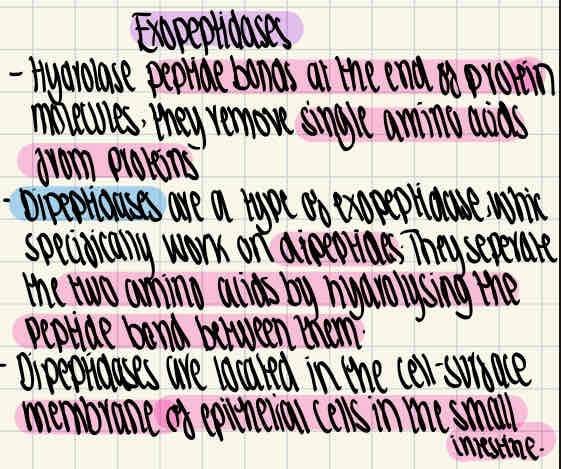 Exopeptidases
- Hydrolase peptide bonds at the end of protein
molecules. They remove single amino acids
from proteins
- Dipeptidases are a type of exopeptidase, whic
specifically work on dipeptides. They seperate
the two amino acids by hydrolysing the
peptide bond between them.
- Dipeptidases are located in the cell-surface
membrane of epithelial cells in the small
intestine.